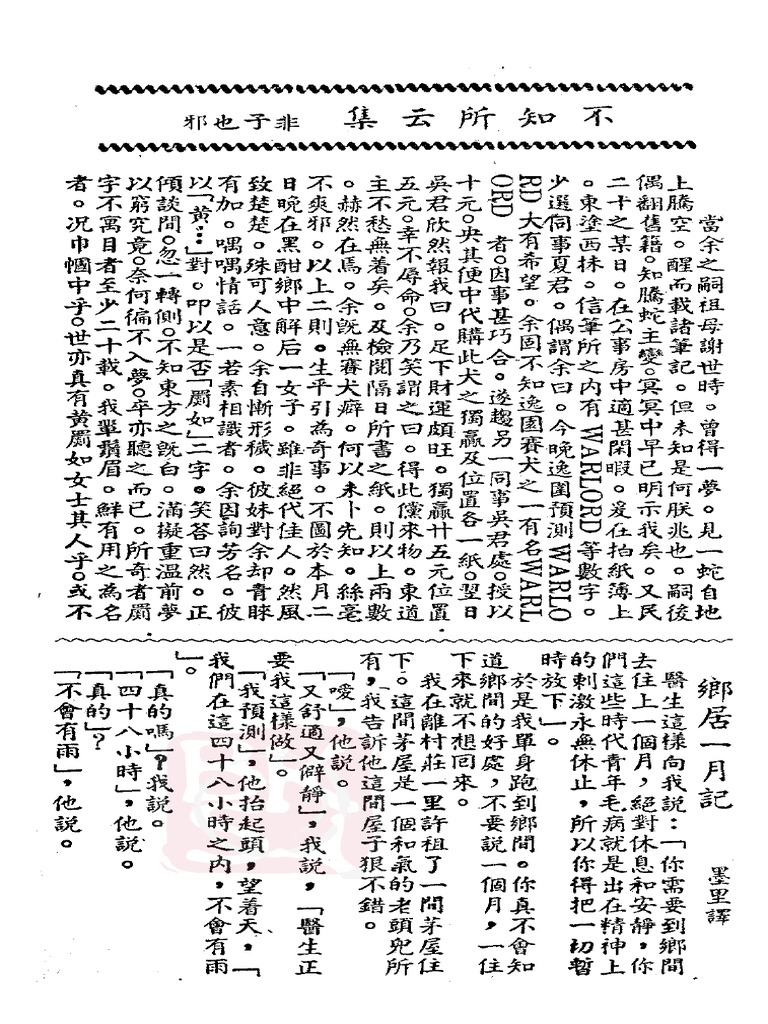 不知所云集 非子也邪
當余之嗣祖母謝世時。曾得一夢。見一蛇自地
上騰空。醒而載諸筆記。但未知是何朕兆也。嗣後
偶翻舊籍。知騰蛇主變。冥冥中早已明示我矣。又民
二十之某日。在公事房中適甚閑暇。爰在拍紙簿上
。東塗西抹。信筆所之內有 WARLORD 等數字。
少選同事夏君。偶謂余曰。今晚逸園預測WARLO
RD 大有希望。余固不知逸園賽犬之一有名WARL
ORD 者。因事甚巧合。遂趨另一同事吳君處。授以
十元。央其便中代購此犬之獨贏及位置各一紙。翌日
吳君欣然報我曰。足下財運頗旺。獨贏廿五元位置
五元。幸不辱命。余乃笑謂之曰。得此儻來物。東道
主不愁無着矣。及檢閱隔日所書之紙。則以上兩數
。赫然在焉。余旣無賽犬癖。何以未卜先知。絲毫
不爽邪。以上二則。生平引為奇事。不圖於本月二
日晚在黑酣鄉中解后一女子。雖非絕代佳人。然風
致楚楚。殊可人意。余自慚形穢。彼妹對余却青睞
有加。喁喁情話。一若素相識者。余因詢芳名。彼
以「黃⋯」對。叩以是否「罽如」二字。笑答曰然。正
傾談間。忽一轉側。不知東方之旣白。滿擬重温前夢
以窮究竟。奈何徧不入夢。卒亦聽之而已。所奇者罽
字不寓目者至少二十載。我輩鬚眉。鮮有用之為名
者。况巾幗中乎。世亦真有黃罽如女士其人乎。或不
鄉居一月記
墨里譯
醫生這樣向我說：「你需要到鄉間
去住上一個月，絕對休息和安靜，你
們這些時代青年毛病就是出在精神上
的刺激永無休止，所以你得把一切暫
時放下」。
於是我單身跑到鄉間。你真不會知
道鄉間的好處，不要說一個月，一住
下來就不想回來。
我在離村莊一里許租了一間茅屋住
下。這間茅屋是一個和氣的老頭兒所
有，我告訴他這間屋子狠不錯。
「噯」，他說。
「又舒適又僻靜」，我說，「醫生正
要我這樣做」。
「我預測」，他抬起頭，望着天，「
我們在這四十八小時之內，不會有雨
」。
「真的嗎」？我說。
「四十八小時」，他說。
「真的」？
「不會有雨」，他說。